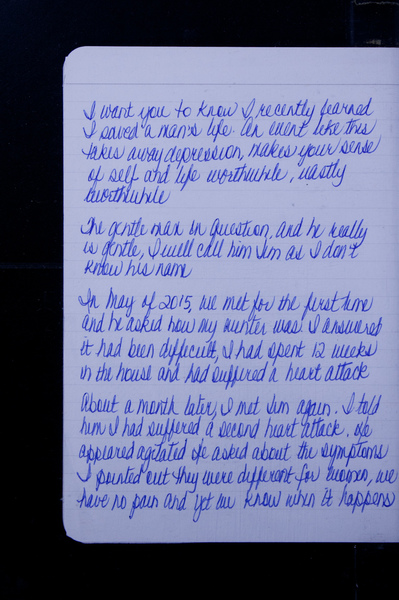 I want you to know I recently learned
I saved a man's life. An event like this
takes away depression, makes your sense
of self and life worthwhile, vastly
worthwhile
The gentle man in question, and he really
is gentle, I will call him Jim as I don't
know his name
In May of 2015, we met for the first time
and he asked how my winter was. I answered
it had been difficult, I had spent 12 weeks
in the house and had suffered a heart attack
About a month later, I met Jim again. I told
him I had suffered a second heart attack. He
appeared agitated He asked about the symptoms
I pointed out they were different for women, we
have no pain and yet we know when it happens